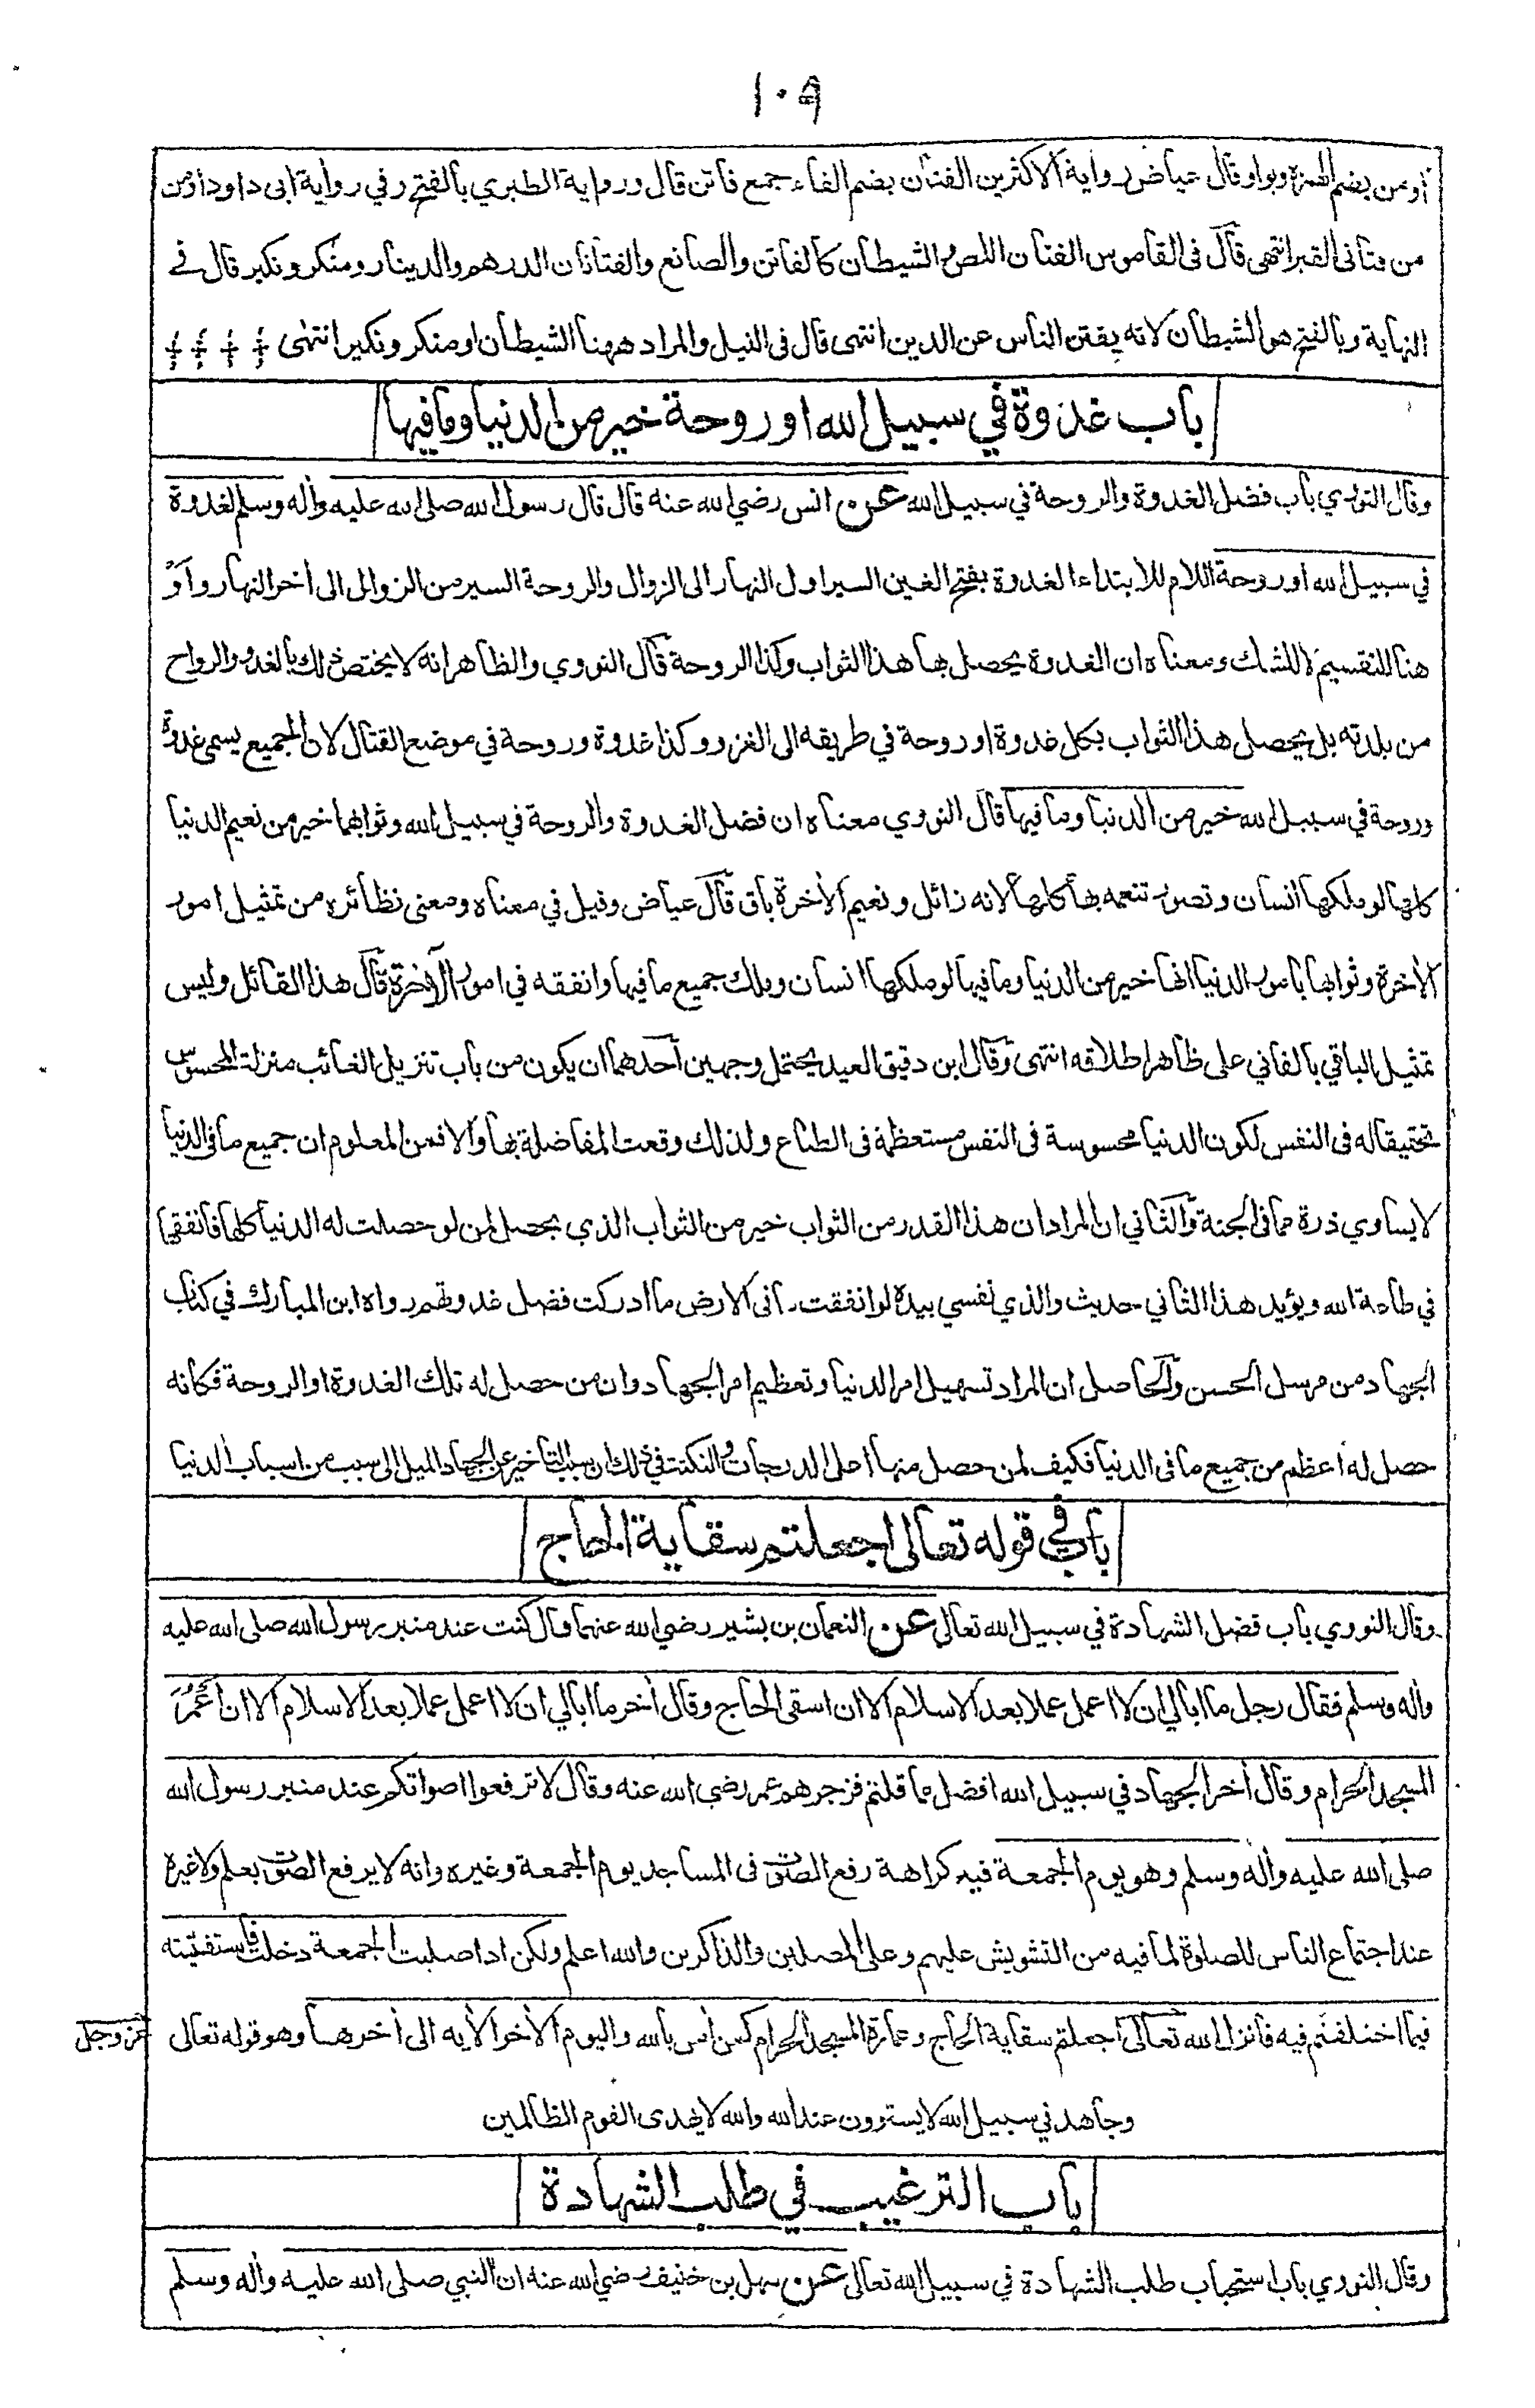 ١٠٩
أومن بضم الهمزة وبواو وقال عياض رواية الاكثرين الفتان بضم الفاء جمع فاتن قال ورواية الطبري بالفتح وفي رواية ابى داود أومن
من فتانى القبر انتهى قال فى القاموس الفتان اللص والشيطان كالفاتن والصانع والفتانان الدرهم والدينار ومنكر ونكير قال في
النهاية وبالفتح هو الشيطان لانه يفتن الناس عن الدين انتهى قال فى النيل والمراد ههنا الشيطان او منكر ونكير انتهى
باب غدوة في سبيل الله او روحة خير من الدنيا وما فيها
وقال النووي باب فضل الغدوة والروحة في سبيل الله عن انس رضي الله عنه قال قال رسول الله صلى الله عليه وأله وسلم لغدوة
في سبيل الله او روحة اللام للابتداء الغدوة بفتح الغين السير اول النهار الى الزوال والروحة السير من الزوال الى أخر النهار وأو
هنا للتقسيم لا للشك ومعناه ان الغدوة يحصل بها هذا الثواب وكذا الروحة قال النووي والظاهر انه لا يختص ذلك بالغدو والرواح
من بلدته بل يحصل هذا الثواب بكل غدوة او روحة في طريقه الى الغزو وكذا غدوة وروحة في موضع القتال لان الجميع يسمى غدوة
وروحة في سبيل الله خير من الدنيا وما فيها قال النووي معناه ان فضل الغدوة والروحة في سبيل الله وثوابهما خير من نعيم الدنيا
كلها لو ملكها انسان وتصور تنعمه بها كلها لانه زائل ونعيم الأخرة باق قال عياض وقيل في معناه ومعنى نظائره من تمثيل امور
الأخرة وثوابها بامور الدنيا انها خير من الدنيا وما فيها لو ملكها انسان وملك جميع ما فيها وانفقه في امور الأخرة قال هذا القائل وليس
تمثيل الباقي بالفاني على ظاهر اطلاقه انتهى وقال ابن دقيق العيد يحتمل وجهين أحدهما ان يكون من باب تنزيل الغائب منزلة المحسوس
تحقيقا له فى النفس لكون الدنيا محسوسة فى النفس مستعظمة فى الطباع ولذلك وقعت المفاضلة بها والا فمن المعلوم ان جميع ما فى الدنيا
لا يساوي ذرة مما فى الجنة والثاني ان المراد ان هذا القدر من الثواب خير من الثواب الذي يحصل لمن لو حصلت له الدنيا كلها فانفقها
في طاعة الله ويؤيد هذا الثاني حديث والذي نفسي بيده لو انفقت ما فى الارض ما ادركت فضل غدوتهم رواه ابن المبارك في كتاب
الجهاد من مرسل الحسن والحاصل ان المراد تسهيل امر الدنيا وتعظيم امر الجهاد وان من حصل له تلك الغدوة او الروحة فكانه
حصل له أعظم من جميع ما فى الدنيا فكيف لمن حصل منها اعلى الدرجات والنكتة في ذلك ان سبب التاخير عن الجهاد الميل الى سبب من اسباب الدنيا
باب في قوله تعالى اجعلتم سقاية الحاج
وقال النووي باب فضل الشهادة في سبيل الله تعالى عن النعمان بن بشير رضي الله عنهما قال كنت عند منبر رسول الله صلى الله عليه
وأله وسلم فقال رجل ما ابالي ان لا اعمل عملا بعد الاسلام الا ان اسقى الحاج وقال أخر ما ابالي ان لا اعمل عملا بعد الاسلام الا ان أعمر
المسجد الحرام وقال أخر الجهاد في سبيل الله افضل مما قلتم فزجرهم عمر رضي الله عنه وقال لا ترفعوا اصواتكم عند منبر رسول الله
صلى الله عليه وأله وسلم وهو يوم الجمعة فيه كراهة رفع الصوت فى المساجد يوم الجمعة وغيره وانه لا يرفع الصوت بعلم ولا غيره
عند اجتماع الناس للصلوة لما فيه من التشويش عليهم وعلى المصلين والذاكرين والله اعلم ولكن اذا صليت الجمعة دخلت فاستفتيته
فيما اختلفتم فيه فانزل الله تعالى اجعلتم سقاية الحاج وعمارة المسجد الحرام كمن أمن بالله واليوم الأخر الأيه الى أخرها وهو قوله تعالى
عز وجل
وجاهد في سبيل الله لا يستوون عند الله والله لا يهدى القوم الظالمين
باب الترغيب في طلب الشهادة
وقال النووي باب استحباب طلب الشهادة في سبيل الله تعالى عن سهل بن حنيف رضي الله عنه ان النبي صلى الله عليه وأله وسلم